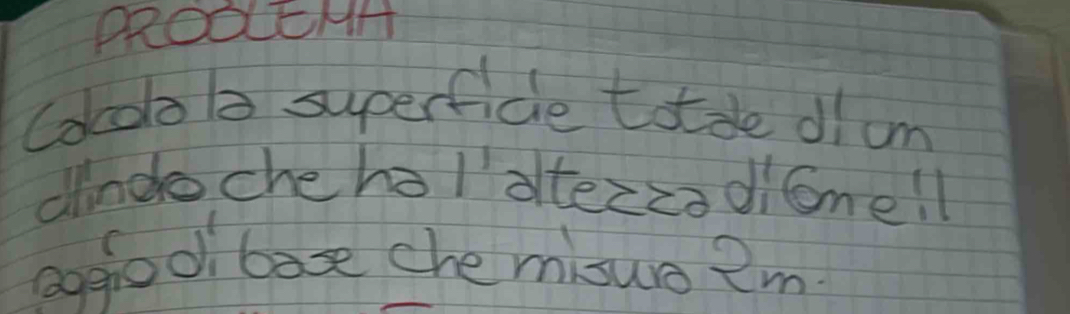 PROBLEMA
Calcola la superficie totale di un
cilindo che ha l'altezza di 6m e il
raggio di base che misura 2m.